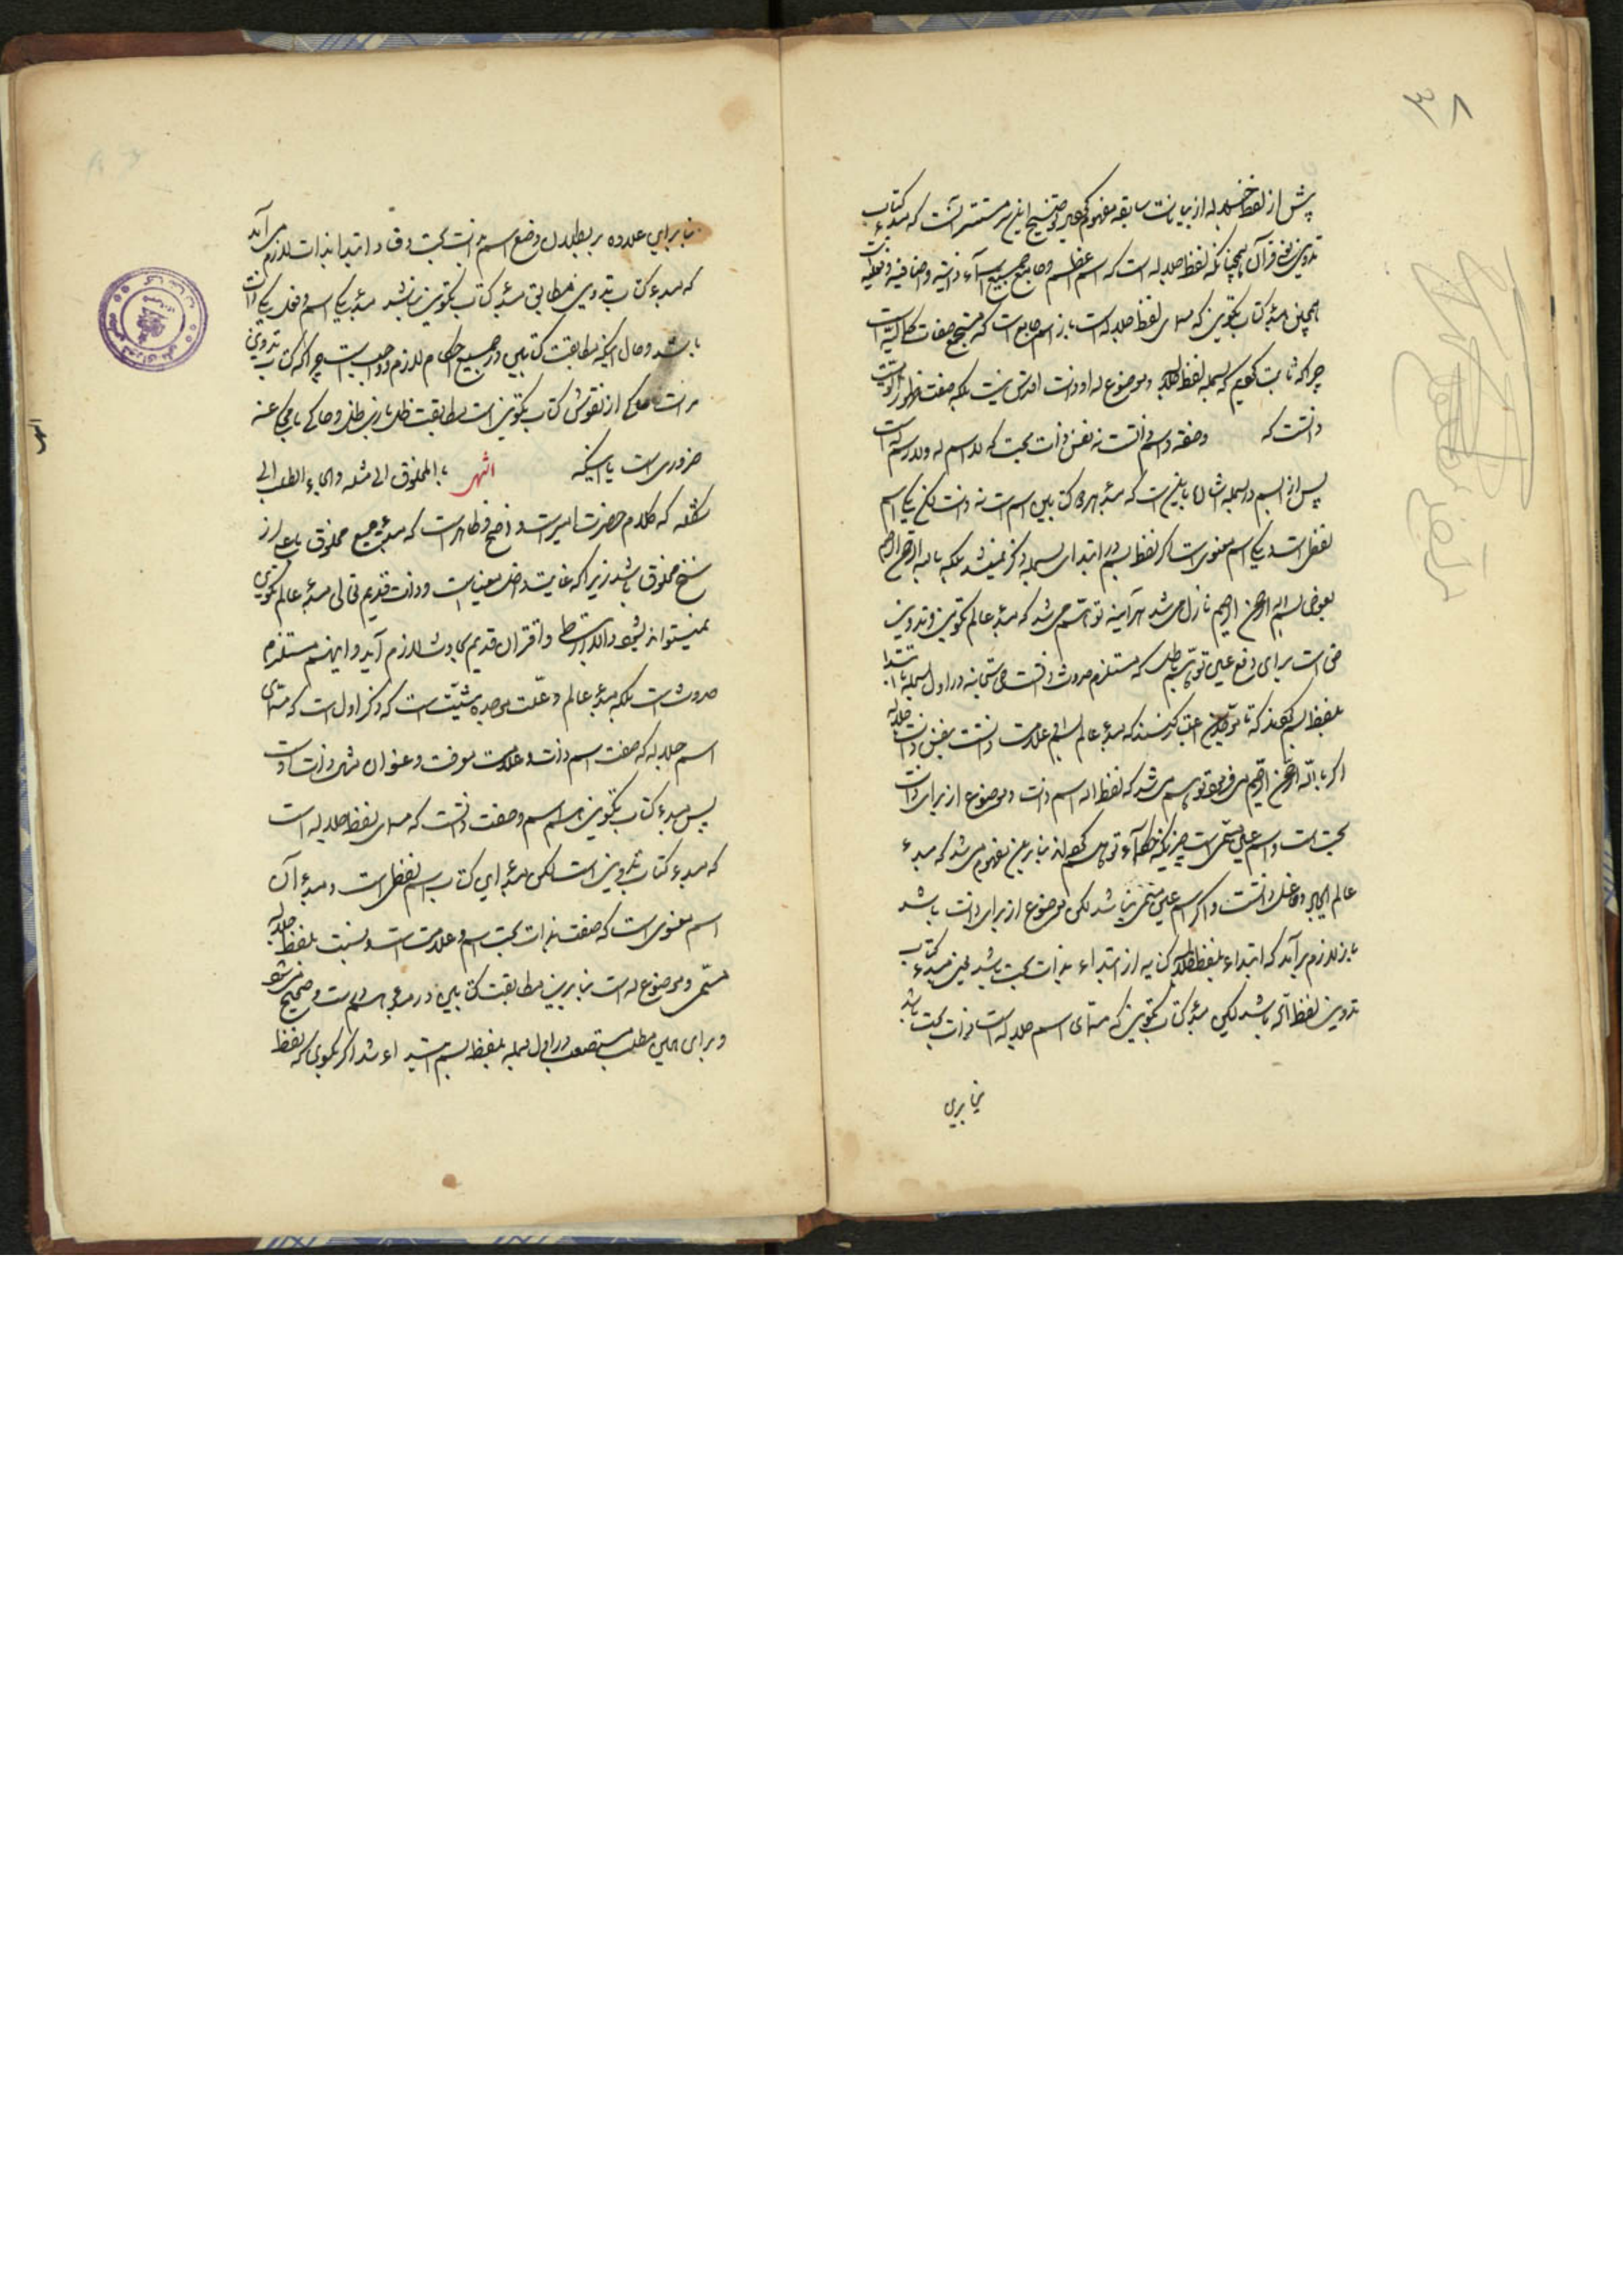 ۳۸
پیش از لفظ جلاله از بیانات سابقه مفهوم گردید و توضیح این سر مستتر آنست که مبدء کتاب
تدوینی قرآن همچنانکه لفظ جلاله است که اسم اعظم و جامع جمیع اسماء ذاتیه و اضافیه و فعلیه
همچنین مبدء کتاب تکوین که مسمای لفظ جلاله است باز اسم جامع است که مستجمع صفات کمالیه است
چرا که ثابت کردیم که بسمله لفظ جلاله و موضوع له او ذات اقدس نیست بلکه صفت ظهور
ذاتست که وصفه و اسم ذاتست نه نفس ذات بحت که لا اسم له ولا رسم است
پس از بسم در بسمله اشاره باینست که مبدء هر دو کتابین اسم است نه ذات لکن یکی اسم
لفظی است و یکی اسم معنوی است اگر لفظ بسم در ابتدای بسمله ذکر نمیشد بلکه بالله الرحمن الرحیم
بعوض بسم الله الرحمن الرحیم نازل می شد هرآینه توهم می شد که مبدء عالم تکوین و تدوین
حق است برای دفع این توهم باطل که مستلزم حدوث ذاتست حق سبحانه در اول بسمله ابتدا
بلفظ بسم کرد که تا موحدین اعتبار کنند که مبدء عالم اسم و علامت ذاتست نه نفس ذات جلاله
اگر بالله الرحمن الرحیم می فرمود توهم می شد که لفظ الله اسم ذات و موضوع از برای ذات
بحت است و اسم عین مسمی است چنانکه حکماء توهم کرده اند بنابرین مفهوم می شد که مبدء
عالم ایجاد و فاعل ذاتست و اگر اسم عین مسمی نباشد لکن موضوع از برای ذات باشد
باز لازم میآید که ابتداء بلفظ جلاله کنایه از ابتداء بذات بحت باشد یعنی مبدء کتاب
تدوین لفظ الله باشد لکن مبدء کتاب تکوین که مسمای اسم جلاله است ذات بحت باشد
بنابرین
بنابراین علاوه بر بطلان وضع اسم بر ذات بحت و فساد ابتدا بذات لازم می آید
که مبدء کتاب تدوین مطابق مبدء کتاب تکوین نباشد مبدء یکی اسم و مبدء یکی ذات
باشد و حال آنکه مطابقت کتابین در جمیع احکام لازم و واجب است چرا که کتاب تدوینی
مرآت و حاکی از نقوش کتاب تکوین است مطابقت ظل با ذی ظل و حاکی با محکی عنه
ضروری است با آنکه انتهی المخلوق الی مثله والجاء الطلب الی
شکله که کلام حضرت امیر است واضح و ظاهر است که مبدء جمیع مخلوق باید از
سنخ مخلوق باشد زیرا که غایت داخل مغیاست و ذات قدیم تعالی مبدء عالم تکوین
نمیتواند بشود والا ارتباط و اقتران قدیم بحادث لازم آید و این هم مستلزم
حدوث است بلکه مبدء عالم و علت موجده مشیت است که ذکر اول است که مسمای
اسم جلاله که صفت اسم ذات و علامت معرفت و عنوان ذات است
پس مبدء کتاب تکوین هم اسم و صفت ذاتست که مسمای لفظ جلاله است
که مبدء کتاب تدوین است لکن مبدء این کتاب اسم لفظی است و مبدء آن
اسم معنوی است که صفت بذات بحت اسم و علامت است و نسبت بلفظ جلاله
مسمی و موضوع له است بنابرین مطابقت کتابین در مبدء هم درست و صحیح می شود
و برای همین مطلب مستصعب در اول بسمله بلفظ بسم ابتداء شد اگر بگوئی که لفظ